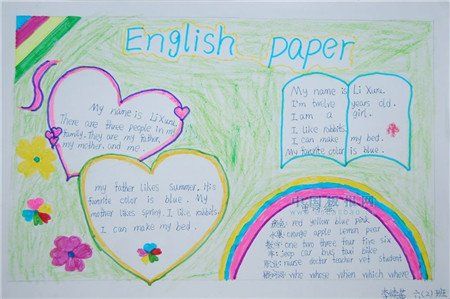 English paper
My name is Li Xuru.
There are three people in my
family. They are my father,
my mother. and me.
my father likes Summer. His
favorite color is blue. My
mother likes spring. I like rabbits.
I can make my bed.
My name is Li Xuru.
I'm twelve years old.
I am a girl.
I like rabbits.
I can make my bed.
My favorite color is blue.
red yellow blue pink
水果: orange apple lemon pear
one two three four five six
车: jeep car bus taxi bike
职业: nurse doctor teacher vet student
who whose when which where
六(2)班